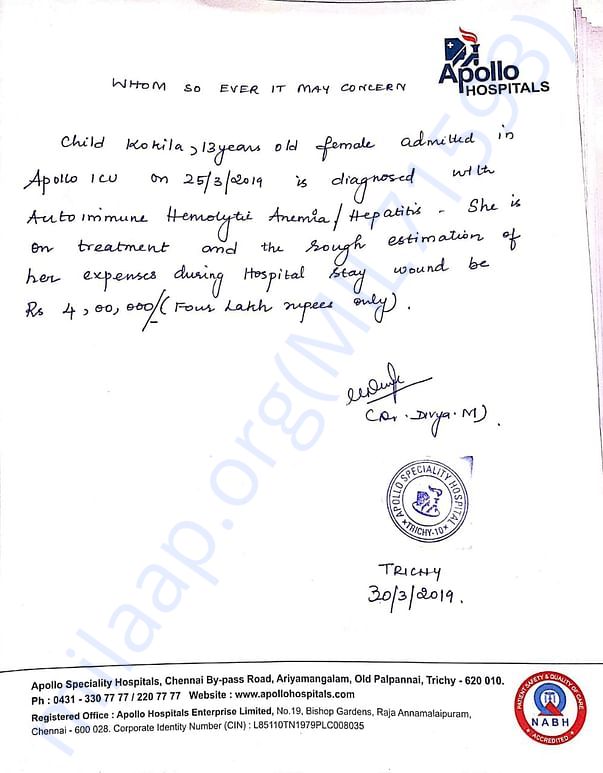 Apollo
HOSPITALS
WHOM SO EVER IT MAY CONCERN
Child Kokila, 13years old female admitted in
Apollo ICU on 25/3/2019 is diagnosed with
Autoimmune Hemolytic Anemia/Hepatitis - She is
on treatment and the rough estimation of
her expenses during Hospital stay wound be
Rs 4,00,000/- (Four Lakh rupees only).
(Dr. Divya. M).
APOLLO SPECIALITY HOSPITAL
*TRICHY-10*
TRICHY
30/3/2019.
milaap.org(MIL71598)
Apollo Speciality Hospitals, Chennai By-pass Road, Ariyamangalam, Old Palpannai, Trichy - 620 010.
Ph : 0431 - 330 77 77 / 220 77 77 Website : www.apollohospitals.com
Registered Office : Apollo Hospitals Enterprise Limited, No.19, Bishop Gardens, Raja Annamalaipuram,
Chennai - 600 028. Corporate Identity Number (CIN) : L85110TN1979PLC008035
PATIENT SAFETY & QUALITY OF CARE
NABH
ACCREDITED